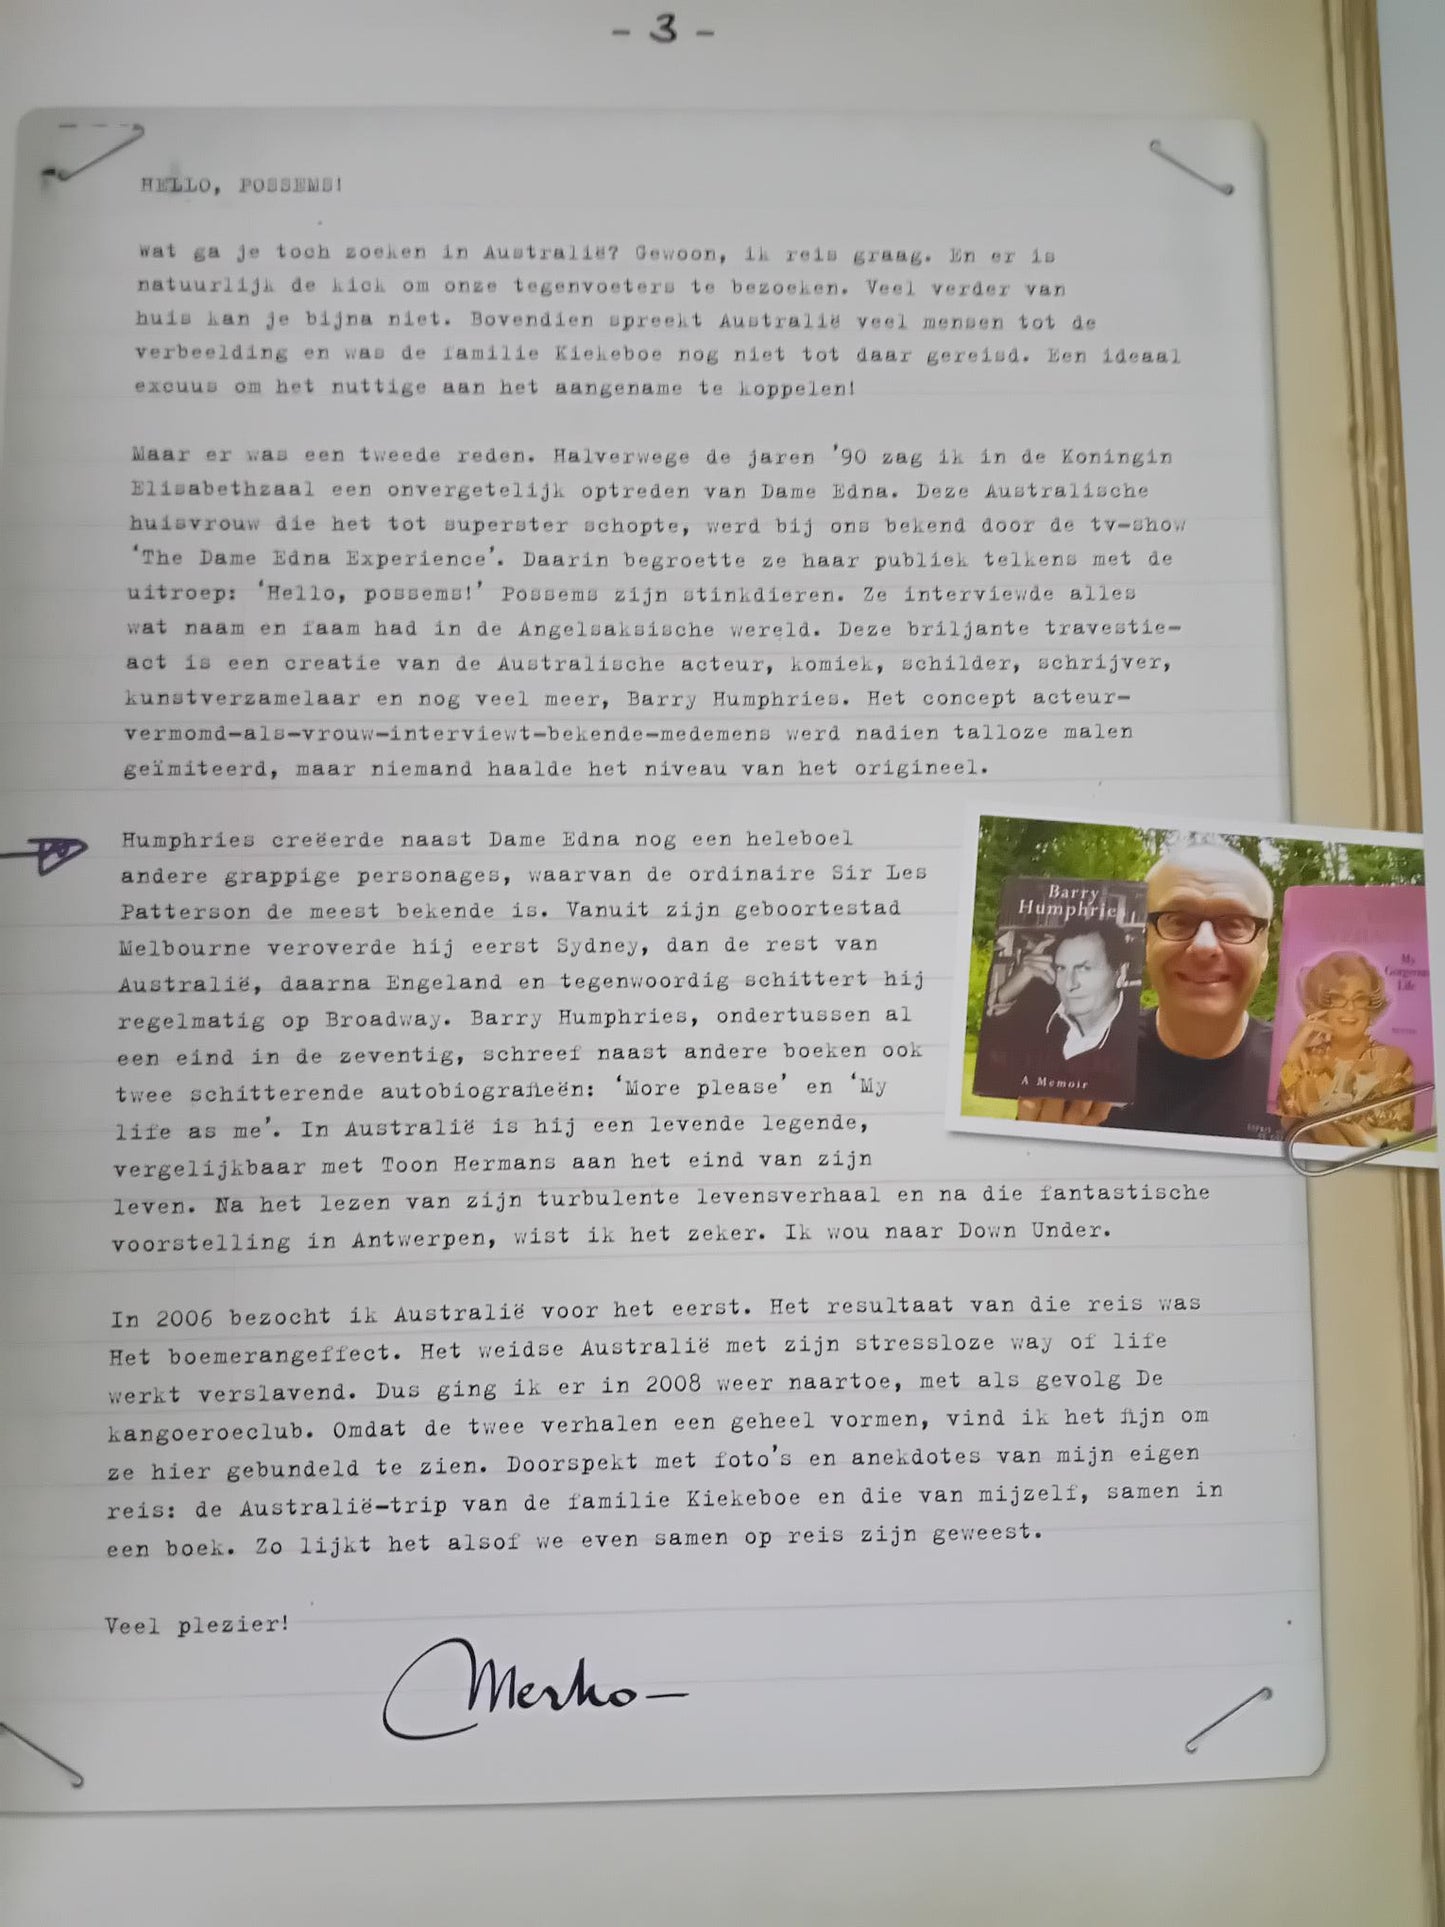 - 3 -
HELLO, POSSEMS!
Wat ga je toch zoeken in Australië? Gewoon, ik reis graag. En er is
natuurlijk de kick om onze tegenvoeters te bezoeken. Veel verder van
huis kan je bijna niet. Bovendien spreekt Australië veel mensen tot de
verbeelding en was de familie Kiekeboe nog niet tot daar gereisd. Een ideaal
excuus om het nuttige aan het aangename te koppelen!
Maar er was een tweede reden. Halverwege de jaren '90 zag ik in de Koningin
Elisabethzaal een onvergetelijk optreden van Dame Edna. Deze Australische
huisvrouw die het tot superster schopte, werd bij ons bekend door de tv-show
'The Dame Edna Experience'. Daarin begroette ze haar publiek telkens met de
uitroep: 'Hello, possems!' Possems zijn stinkdieren. Ze interviewde alles
wat naam en faam had in de Angelsaksische wereld. Deze briljante travestie-
act is een creatie van de Australische acteur, komiek, schilder, schrijver,
kunstverzamelaar en nog veel meer, Barry Humphries. Het concept acteur-
vermomd-als-vrouw-interviewt-bekende-medemens werd nadien talloze malen
geïmiteerd, maar niemand haalde het niveau van het origineel.
Humphries creëerde naast Dame Edna nog een heleboel
andere grappige personages, waarvan de ordinaire Sir Les
Patterson de meest bekende is. Vanuit zijn geboortestad
Melbourne veroverde hij eerst Sydney, dan de rest van
Australië, daarna Engeland en tegenwoordig schittert hij
regelmatig op Broadway. Barry Humphries, ondertussen al
een eind in de zeventig, schreef naast andere boeken ook
twee schitterende autobiografieën: 'More please' en 'My
life as me'. In Australië is hij een levende legende,
vergelijkbaar met Toon Hermans aan het eind van zijn
leven. Na het lezen van zijn turbulente levensverhaal en na die fantastische
voorstelling in Antwerpen, wist ik het zeker. Ik wou naar Down Under.
Barry
Humphrie
A Memoir
My
Gorgeous
Life
In 2006 bezocht ik Australië voor het eerst. Het resultaat van die reis was
Het boemerangeffect. Het weidse Australië met zijn stressloze way of life
werkt verslavend. Dus ging ik er in 2008 weer naartoe, met als gevolg De
kangoeroeclub. Omdat de twee verhalen een geheel vormen, vind ik het fijn om
ze hier gebundeld te zien. Doorspekt met foto's en anekdotes van mijn eigen
reis: de Australië-trip van de familie Kiekeboe en die van mijzelf, samen in
een boek. Zo lijkt het alsof we even samen op reis zijn geweest.
Veel plezier!
Merho-